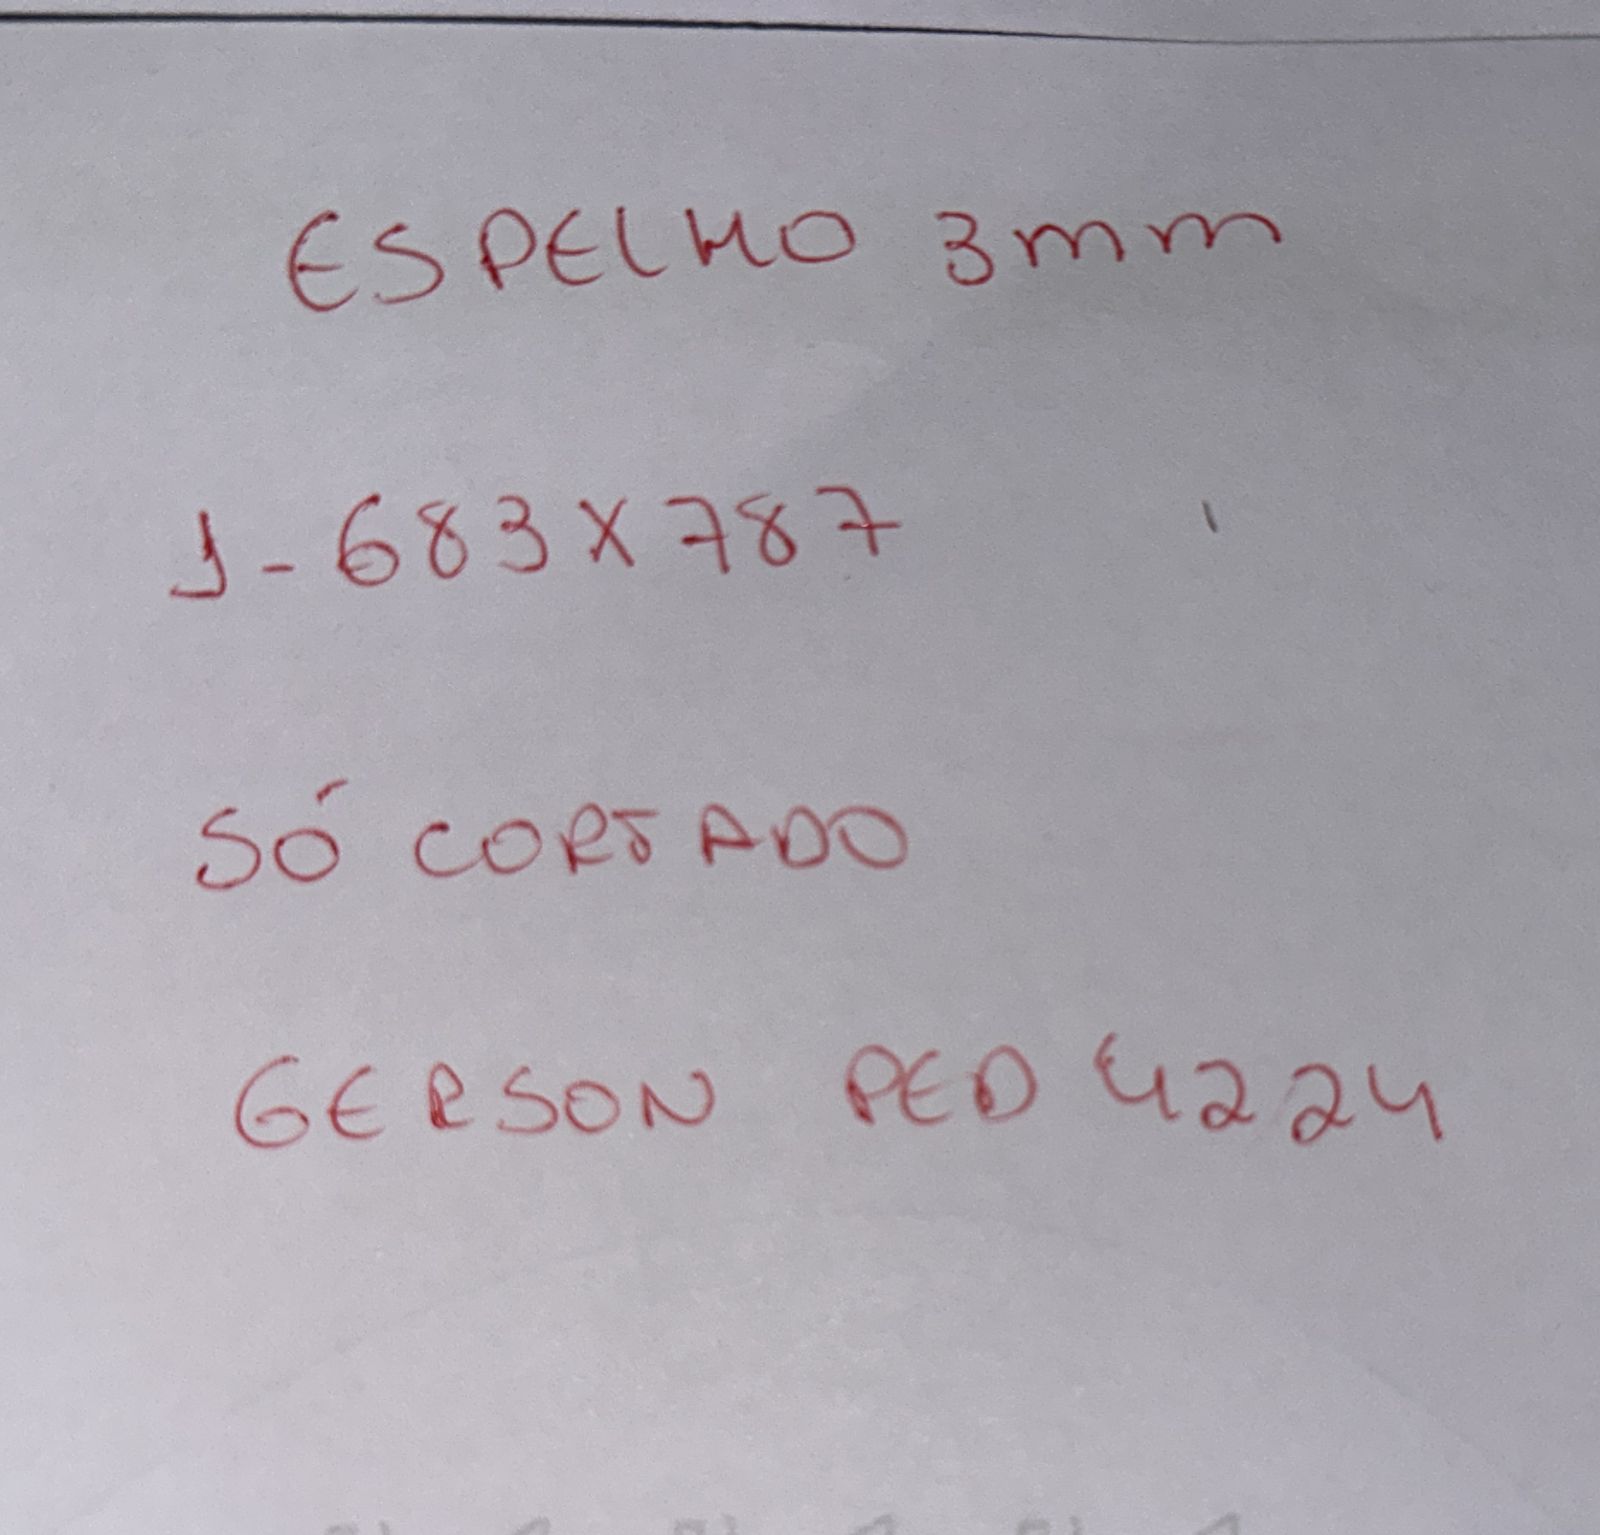 ESPELHO 3mm
1-683X787
SÓ CORTADO
GERSON PED 4224